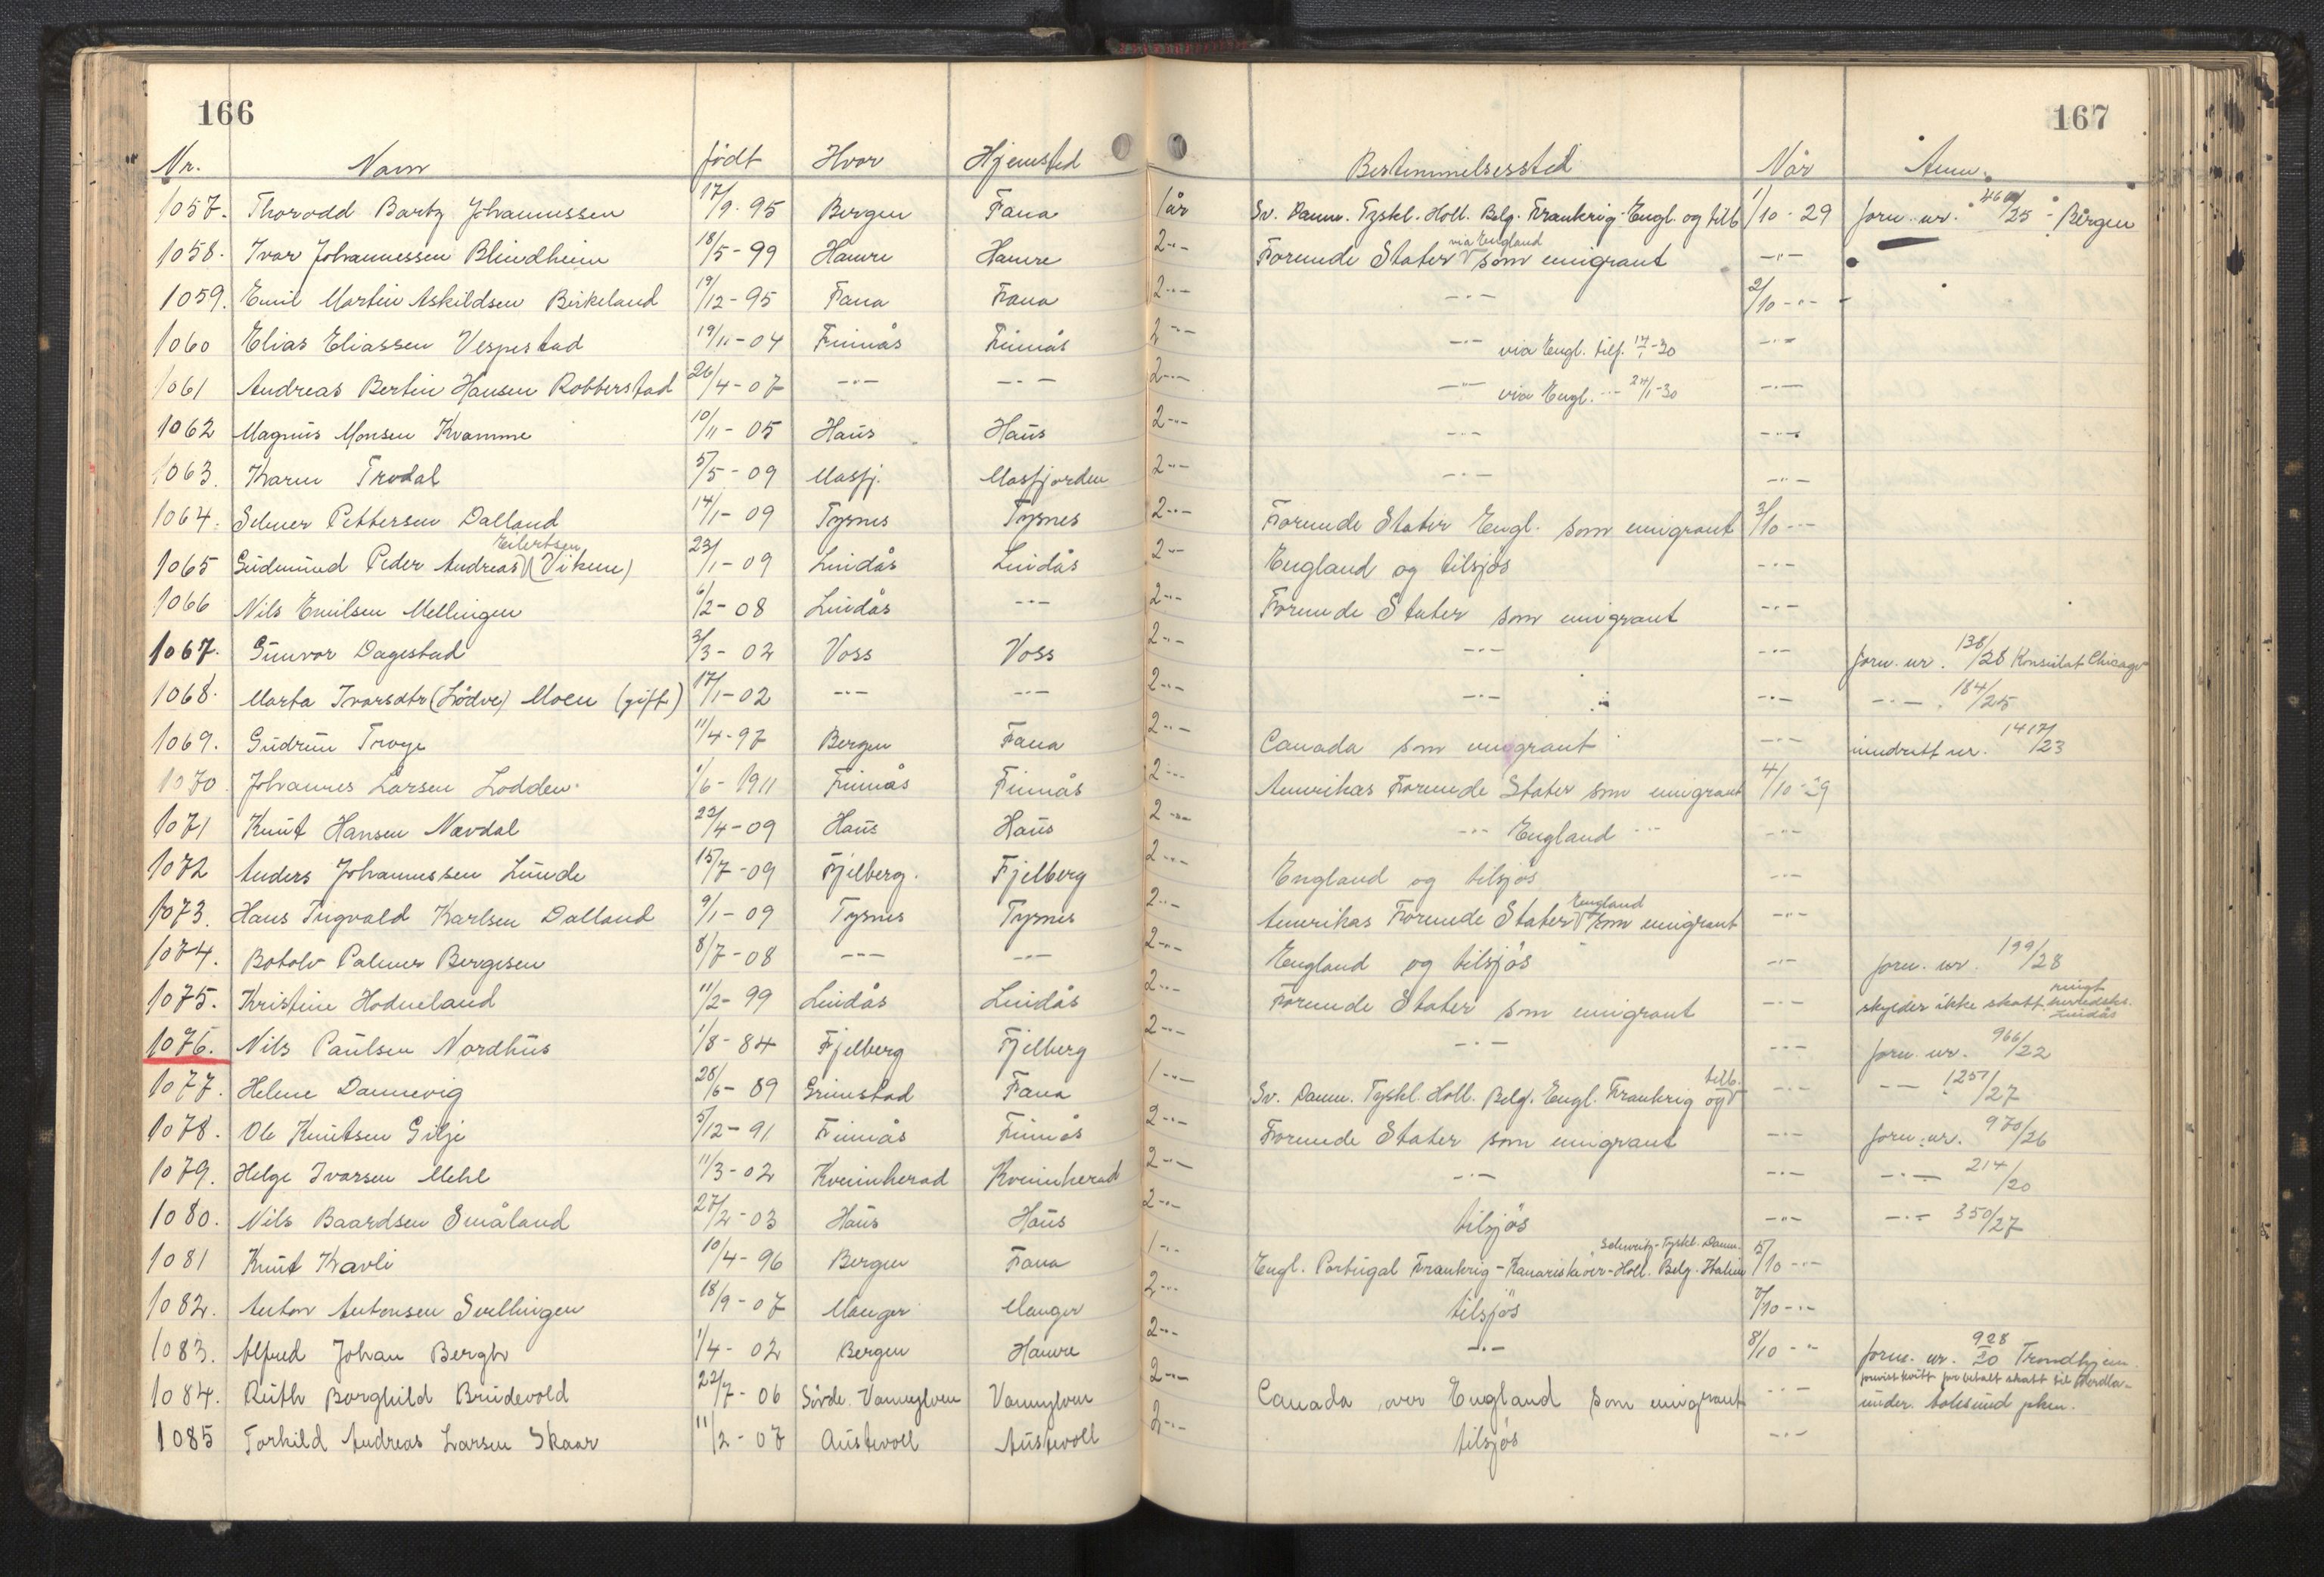 166
167
Nr. Navn født Hvor Hjemsted Bestemmelsessted Når Anm.
1057. Thorodd Bartz Johannessen 17/9-95 Bergen Fana 1 år Sv. Danm. Tyskl. Holl. Belg. Frankrig - Engl. og tilb 1/10-29 forn. nr. /25 - Bergen
1058. Ivar Johannessen Blindheim 18/5-99 Hamre Hamre 2 -"- Forende Stater via England som emigrant -"-
1059. Emil Martin Askildsen Birkeland 19/12-95 Fana Fana 2 -"- -"- 2/10 -"-
1060 Elias Eliassen Vespestad 19/11-04 Finnås Finnås 2 -"- -"- via Engl. tilf. -30 -"-
1061 Andreas Bertin Hansen Robberstad 26/4-07 -"- -"- 2 -"- -"- via Engl. -"- 24/1-30 -"-
1062 Magnus Monsen Kvamme 10/11-05 Haus Haus 2 -"- -"- -"-
1063. Karen Trodal 5/5-09 Masfj. Masfjorden 2 -"- -"- -"-
1064. Selmer Pettersen Dalland 14/1-09 Tysnes Tysnes 2 -"- Forende Stater Engl. som emigrant 3/10 -"-
1065 Gudmund Peder Andreas Eilertsen (Vikene) 23/1-09 Lindås Lindås 2 -"- England og tilsjøs -"-
1066 Nils Emilsen Mellingen 6/2-08 Lindås -"- 2 -"- Forende Stater som emigrant -"-
1067. Gunvor Dagestad 3/3-02 Voss Voss 2 -"- -"- -"- forn. nr. 138/28 Konsulat Chicago
1068. Marta Ivarsdtr (Lødve) Moen (gift) 17/1-02 -"- -"- 2 -"- -"- -"- -"- 184/25
1069. Gudrun Troye 11/4-97 Bergen Fana 2 -"- Canada som emigrant -"- inndratt nr. 1417/23
1070. Johannes Larsen Lodden. 1/6-1911 Finnås Finnås 2 -"- Amerikas Forende Stater som emigrant 4/10-29
1071 Knut Hansen Navdal 22/4-09 Haus Haus 2 -"- -"- England -"- -"-
1072 Anders Johannessen Lunde 15/7-09 Fjelberg. Fjelberg 2 -"- England og tilsjøs -"-
1073. Hans Ingvald Karlsen Dalland 9/1-09 Tysnes Tysnes 2 -"- Amerikas Forende Stater England som emigrant -"-
1074. Botolv Palmer Bergesen 8/7-08 -"- -"- 2 -"- England og tilsjøs -"- forn. nr. 199/28
1075. Kristine Hodneland 11/2-99 Lindås Lindås 2 -"- Forende Stater som emigrant -"- skylder ikke skatt. ringt herredsks. Lindås
1076. Nils Paulsen Nordhus 1/8-84 Fjelberg Fjelberg 2 -"- -"- -"- forn. nr. 966/22
1077. Helene Dannevig 28/6-89 Grimstad Fana 1 -"- Sv. Danm. Tyskl. Holl. Belg. Engl. Frankrig og tilb. -"- -"- 1257/27
1078. Ole Knutsen Gilje 5/12-91 Finnås Finnås 2 -"- Forende Stater som emigrant -"- forn. nr. 970/26
1079. Helge Ivarsen Mehl 11/3-02 Kvinnherad Kvinnherad 2 -"- -"- -"- -"- 214/20
1080. Nils Baardsen Småland 27/2-03 Haus Haus 2 -"- tilsjøs -"- -"- 350/27
1081 Knut Kavli 10/4-96 Bergen Fana 1 -"- Engl. Portugal Frankrig - Kanariskaöer - Holl. Belg. Italien Schweitz - Tyskl. Danm. 5/10 -"-
1082. Anton Antonsen Soellingen 18/9-07 Manger Manger 2 -"- tilsjøs 7/10 -"-
1083. Alfred Johan Bergh 1/4-02 Bergen Hamre 2 -"- -"- 8/10 -"- forn. nr. 928/20 Trondhjem.
1084. Ruth Borghild Brudevold 22/7-06 Søvde. Vannylven Vannylven 2 -"- Canada over England som emigrant -"- forvist kvitt for betalt skatt til
under. Aalesund phm.
1085 Torhild Andreas Larsen Skaar 11/2-07 Austevoll Austevoll 2 -"- tilsjøs -"-